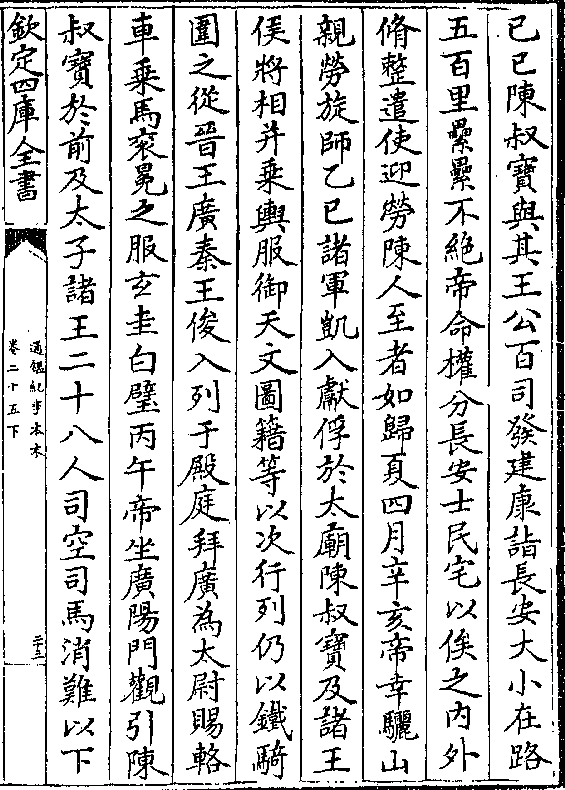 己巳陳叔寶與其王公百司發建康詣長安大小在路
五百里纍纍不絶帝命權分長安士民宅以俟之内外
脩整遣使迎勞陳人至者如歸夏四月辛亥帝幸驪山
親勞旋師乙巳諸軍凱入獻俘於太廟陳叔寶及諸王
侯將相并乗輿服御天文圖籍等以次行列仍以鐵騎
圍之從晉王廣秦王俊入列于殿庭拜廣為太尉賜輅
車乗馬衮冕之服玄圭白璧丙午帝坐廣陽門觀引陳
叔寶於前及太子諸王二十八人司空司馬消難以下
欽定四庫全書
通鑑紀事本末
卷二十五下
二十三